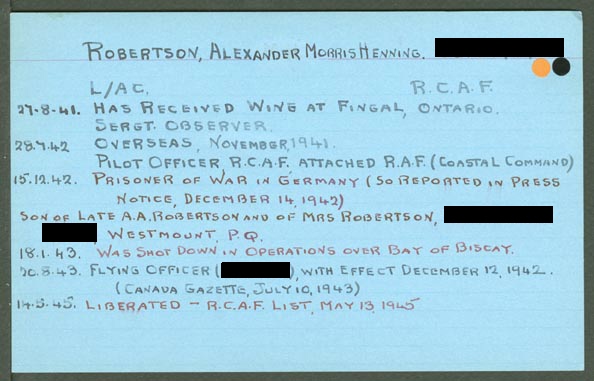 ROBERTSON, ALEXANDER MORRIS HENNING.
L/AC. R.C.A.F.
27-8-41. HAS RECEIVED WING AT FINGAL, ONTARIO.
SERGT. OBSERVER.
OVERSEAS, NOVEMBER, 1941.
28.7.42 PILOT OFFICER, R.C.A.F. ATTACHED R.A.F. (COASTAL COMMAND)
15.12.42. PRISONER OF WAR IN GERMANY (SO REPORTED IN PRESS
NOTICE, DECEMBER 14, 1942)
SON OF LATE A.A. ROBERTSON AND OF MRS ROBERTSON,
WESTMOUNT, P.Q.
18.1.43. WAS SHOT DOWN IN OPERATIONS OVER BAY OF BISCAY.
20.8.43. FLYING OFFICER ( ), WITH EFFECT DECEMBER 12, 1942.
(CANADA GAZETTE, JULY 10, 1943)
14.5.45. LIBERATED – R.C.A.F. LIST, MAY 13, 1945